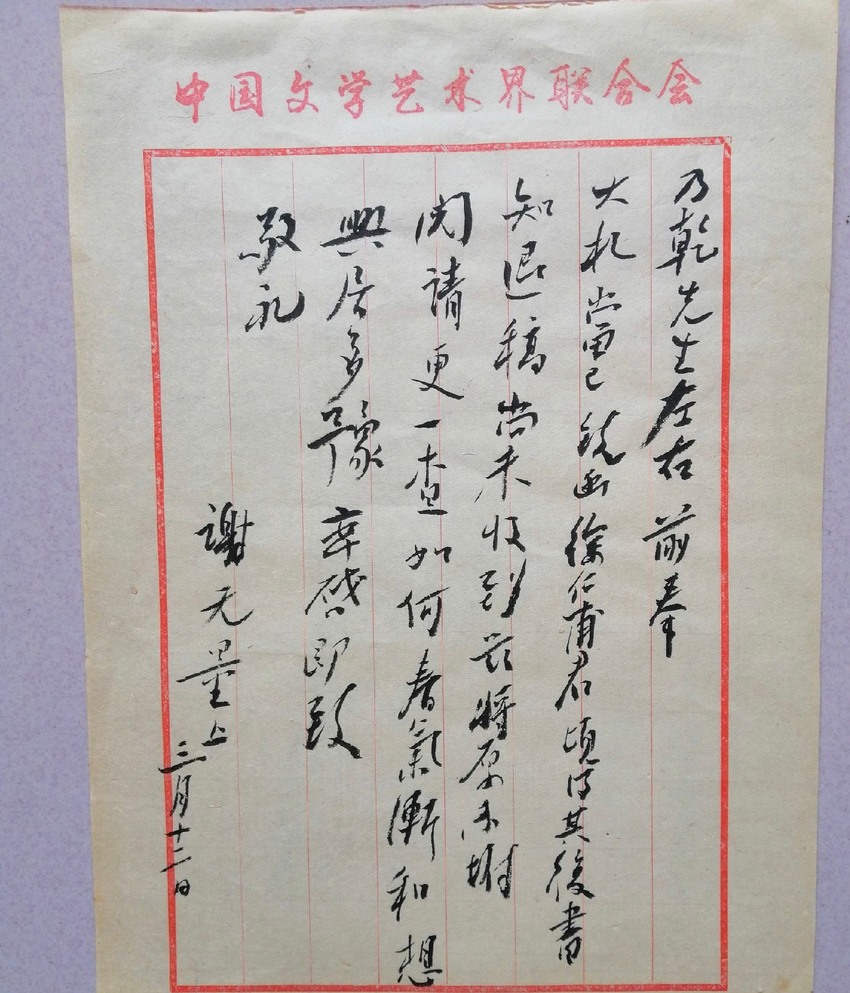 中国文学艺术界联合会
乃乾先生左右前奉
大札当已 函徐仁甫君頃得其後書
知退稿尚未收到兹將原函坿
閱請更一查如何春氣漸和想
興居多豫 率啓即致
敬礼
谢无量上
三月十二日